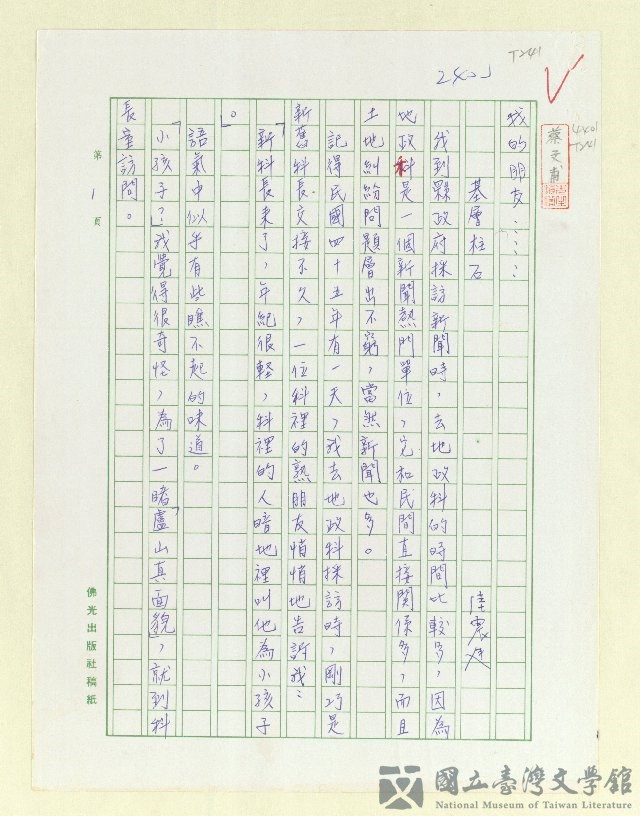 2403
T241
蔡文甫
4401
T241
我的朋友⋯⋯
基層柱石
陸震廷
我到縣政府採訪新聞時,去地政科的時間比較多,因為
地政科是一個新聞熱門單位,它和民間直接關係多,而且
土地糾紛問題層出不窮,當然新聞也多。
記得民國四十五年有一天,我去地政科採訪時,剛巧是
新舊科長交接不久,一位科裡的熟朋友悄悄地告訴我:
「新科長來了,年紀很輕,科裡的人暗地裡叫他為小孩子
。」
語氣中似乎有些瞧不起的味道。
「小孩子」?我覺得很奇怪,為了一睹「盧山真面貌」,就到科
長室訪問。
第1頁
佛光出版社稿紙
國立臺灣文學館
National Museum of Taiwan Literature